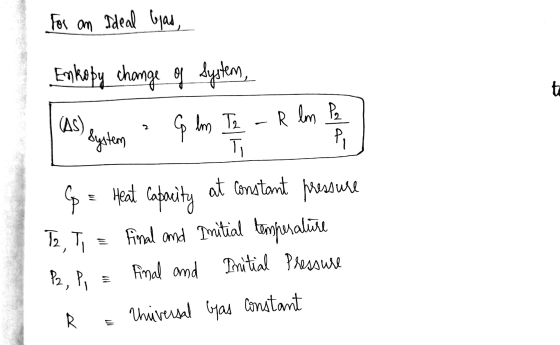 For an Ideal Gas,
Entropy change of System,
(ΔS)system = Cp ln T2/T1 - R ln P2/P1
Cp = Heat Capacity at Constant pressure
T2, T1 = Final and Initial temperature
P2, P1 = Final and Initial Pressure
R = Universal Gas Constant